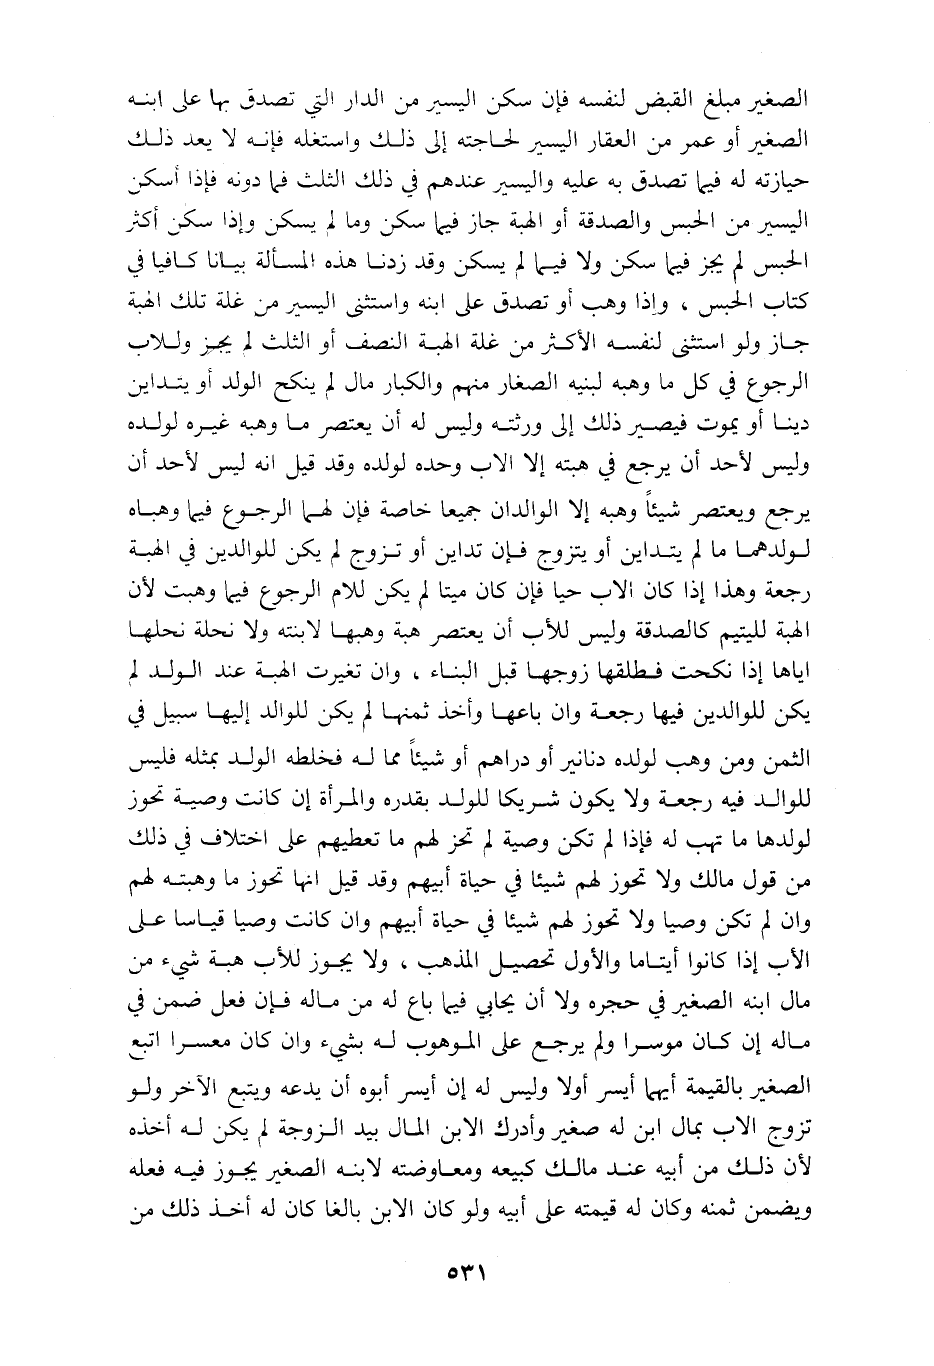 الصغير مبلغ القبض لنفسه فإن سكن اليسير من الدار التي تصدق بها على ابنه
الصغير أو عمر من العقار اليسير لحاجته إلى ذلك واستغله فإنه لا يعد ذلك
حيازته له فيما تصدق به عليه واليسير عندهم في ذلك الثلث فما دونه فإذا أسكن
اليسير من الحبس والصدقة أو الهبة جاز فيما سكن وما لم يسكن وإذا سكن أكثر
الحبس لم يجز فيما سكن ولا فيما لم يسكن وقد زدنا هذه المسألة بيانا كافيا في
كتاب الحبس ، وإذا وهب أو تصدق على ابنه واستثنى اليسير من غلة تلك الهبة
جاز ولو استثنى لنفسه الأكثر من غلة الهبة النصف أو الثلث لم يجز وللاب
الرجوع في كل ما وهبه لبنيه الصغار منهم والكبار مال لم ينكح الولد أو يتداين
دينا أو يموت فيصير ذلك إلى ورثته وليس له أن يعتصر ما وهبه غيره لولده
وليس لأحد أن يرجع في هبته إلا الاب وحده لولده وقد قيل انه ليس لأحد أن
يرجع ويعتصر شيئاً وهبه إلا الوالدان جميعا خاصة فإن لهما الرجوع فيما وهباه
لولدهما ما لم يتداين أو يتزوج فإن تداين أو تزوج لم يكن للوالدين في الهبة
رجعة وهذا إذا كان الاب حيا فإن كان ميتا لم يكن للام الرجوع فيما وهبت لأن
الهبة لليتيم كالصدقة وليس للأب أن يعتصر هبة وهبها لابنته ولا نحلة نحلها
اياها إذا نكحت فطلقها زوجها قبل البناء ، وان تغيرت الهبة عند الولد لم
يكن للوالدين فيها رجعة وان باعها وأخذ ثمنها لم يكن للوالد إليها سبيل في
الثمن ومن وهب لولده دنانير أو دراهم أو شيئاً مما له فخلطه الولد بمثله فليس
للوالد فيه رجعة ولا يكون شريكا للولد بقدره والمرأة إن كانت وصية تحوز
لولدها ما تهب له فإذا لم تكن وصية لم تحز لهم ما تعطيهم على اختلاف في ذلك
من قول مالك ولا تحوز لهم شيئا في حياة أبيهم وقد قيل انها تحوز ما وهبته لهم
وان لم تكن وصيا ولا تحوز لهم شيئا في حياة أبيهم وان كانت وصيا قياسا على
الأب إذا كانوا أيتاما والأول تحصيل المذهب ، ولا يجوز للأب هبة شيء من
مال ابنه الصغير في حجره ولا أن يحابي فيما باع له من ماله فإن فعل ضمن في
ماله إن كان موسرا ولم يرجع على الموهوب له بشيء وان كان معسرا اتبع
الصغير بالقيمة أيهما أيسر أولا وليس له إن أيسر أبوه أن يدعه ويتبع الآخر ولو
تزوج الاب بمال ابن له صغير وأدرك الابن المال بيد الزوجة لم يكن له أخذه
لأن ذلك من أبيه عند مالك كبيعه ومعاوضته لابنه الصغير يجوز فيه فعله
ويضمن ثمنه وكان له قيمته على أبيه ولو كان الابن بالغا كان له أخذ ذلك من
٥٣١